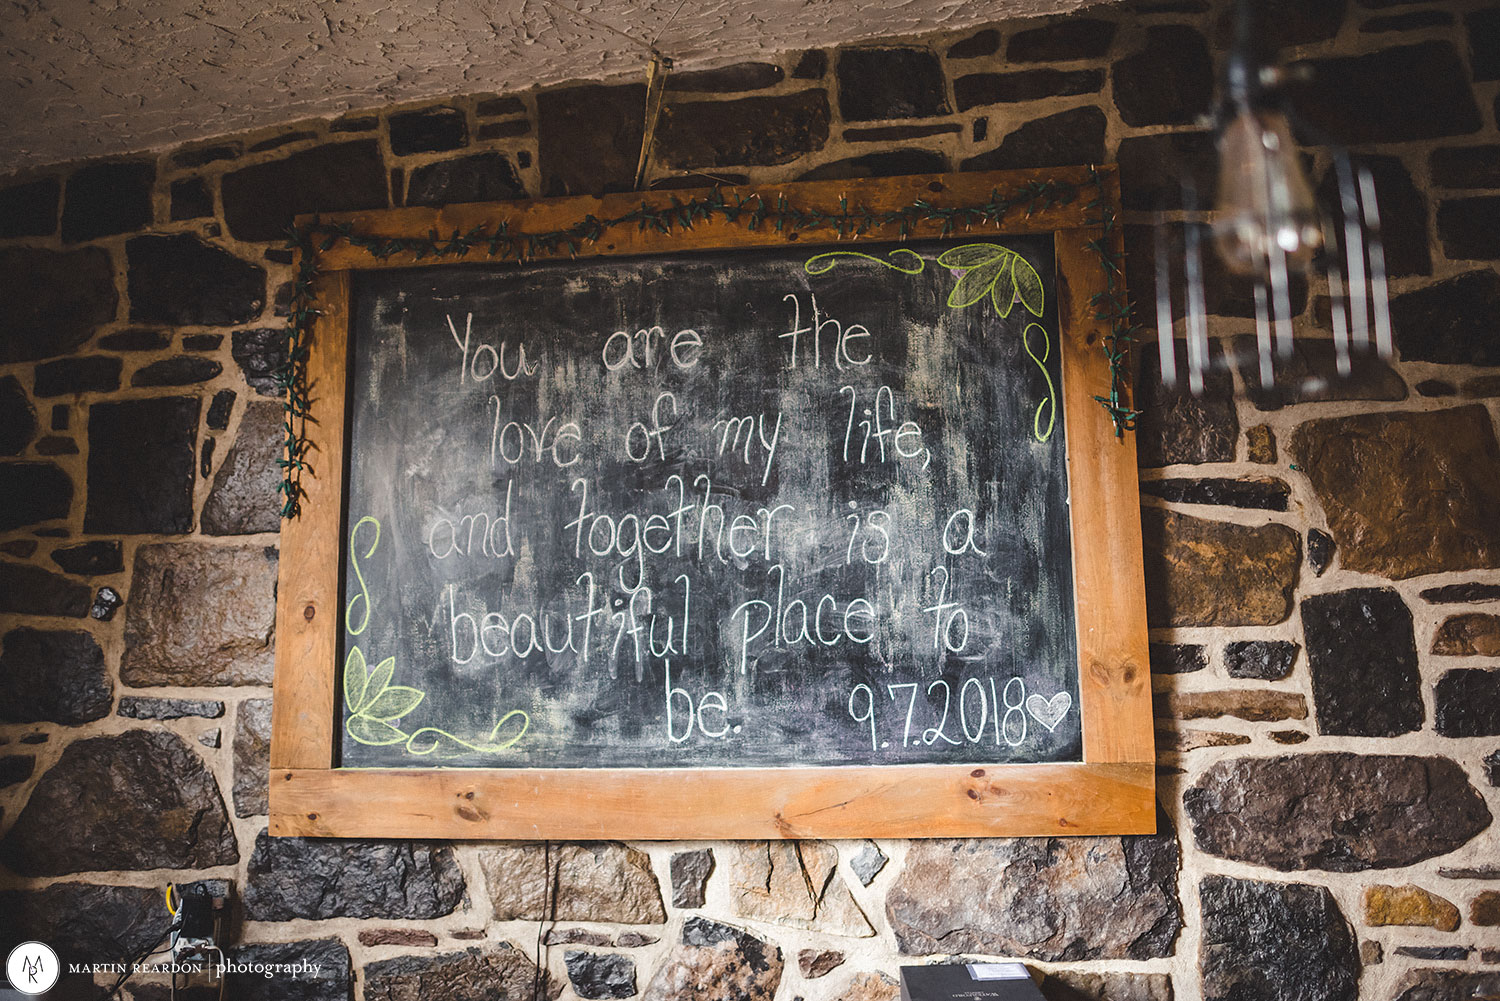 You are the
love of my life,
and together is a
beautiful place to
be. 9.7.2018
MARTIN REARDON | photography